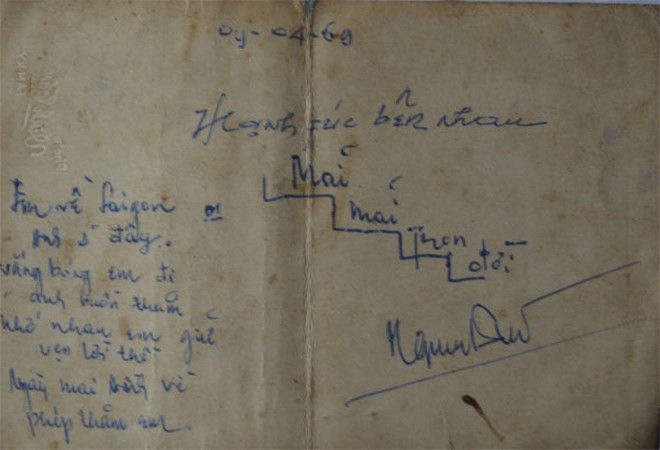 04-04-69
Hạnh fúc bên nhau
Mãi
mãi
Tron
đời
Em về Saigon
Anh ở đây.
vắng bóng em đi
anh buồn thầm
Nhớ nhau em giữ
vẹn lời thề
Ngày mai anh về
phép thăm em.